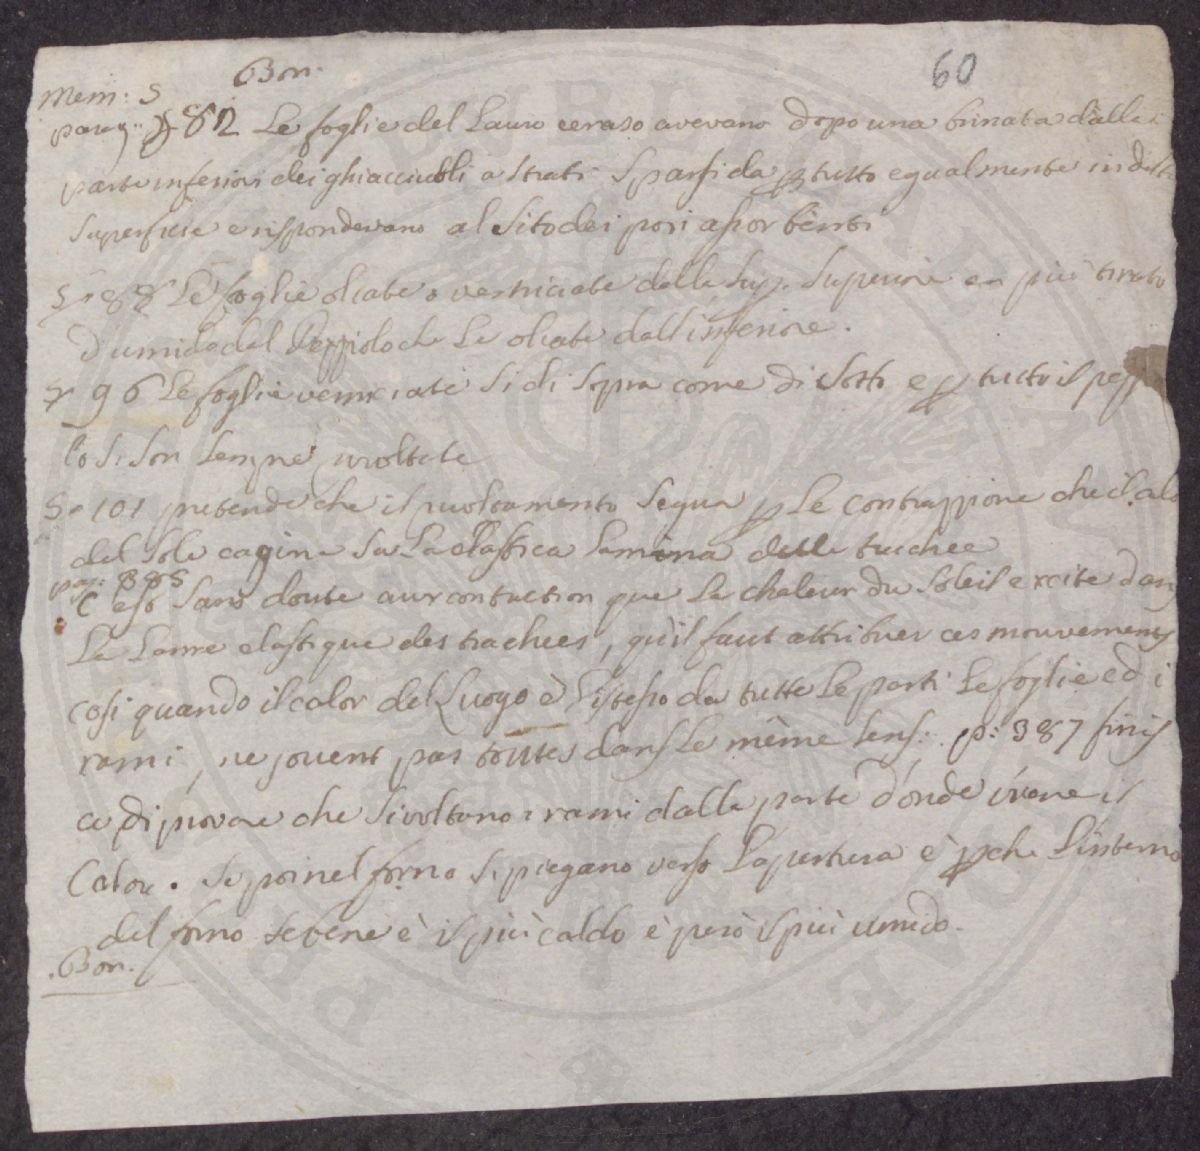 60
Bon.
Mem: 5
parag: § 82 Le foglie del Lauro ceraso avevano dopo una brinata dalle
parte inferiori dei ghiacciuoli a strati sparsi da p tutto egualmente in detta
superficie e rispondevano al sito dei pori assorbenti
§ 88 Le foglie oliate o verniciate dalla sup. superiore an più tirato
d'umido del Peppiolo che le oliate dall'inferiore.
§ 96 Le foglie verniciate si di sopra come di sotto e p tutto il pep
lo si son sempre rivoltate
§ 101 pretende che il rivoltamento segua p Le contrazzione che il calo
del sole cagiona su La elastica lamina delle trachee
pag: 385
C'est sans doute aux contraction que La chaleur du Soleil excite dans
La Lame elastique des trachees, qu'il faut attribuer ces mouvements
cosi quando il calor del Luogo è l'istesso da tutte Le parti Le foglie ed i
rami, ne jouent pas toutes dans Le même sens: p: 387 finis
ce di provare che si voltano i rami dalla parte d'onde viene il
Calore. Se poi nel forno si piegano verso L'apertura è pche L'interno
del forno sebene è il più caldo è però il più umido.
Bon.
PUBLICA